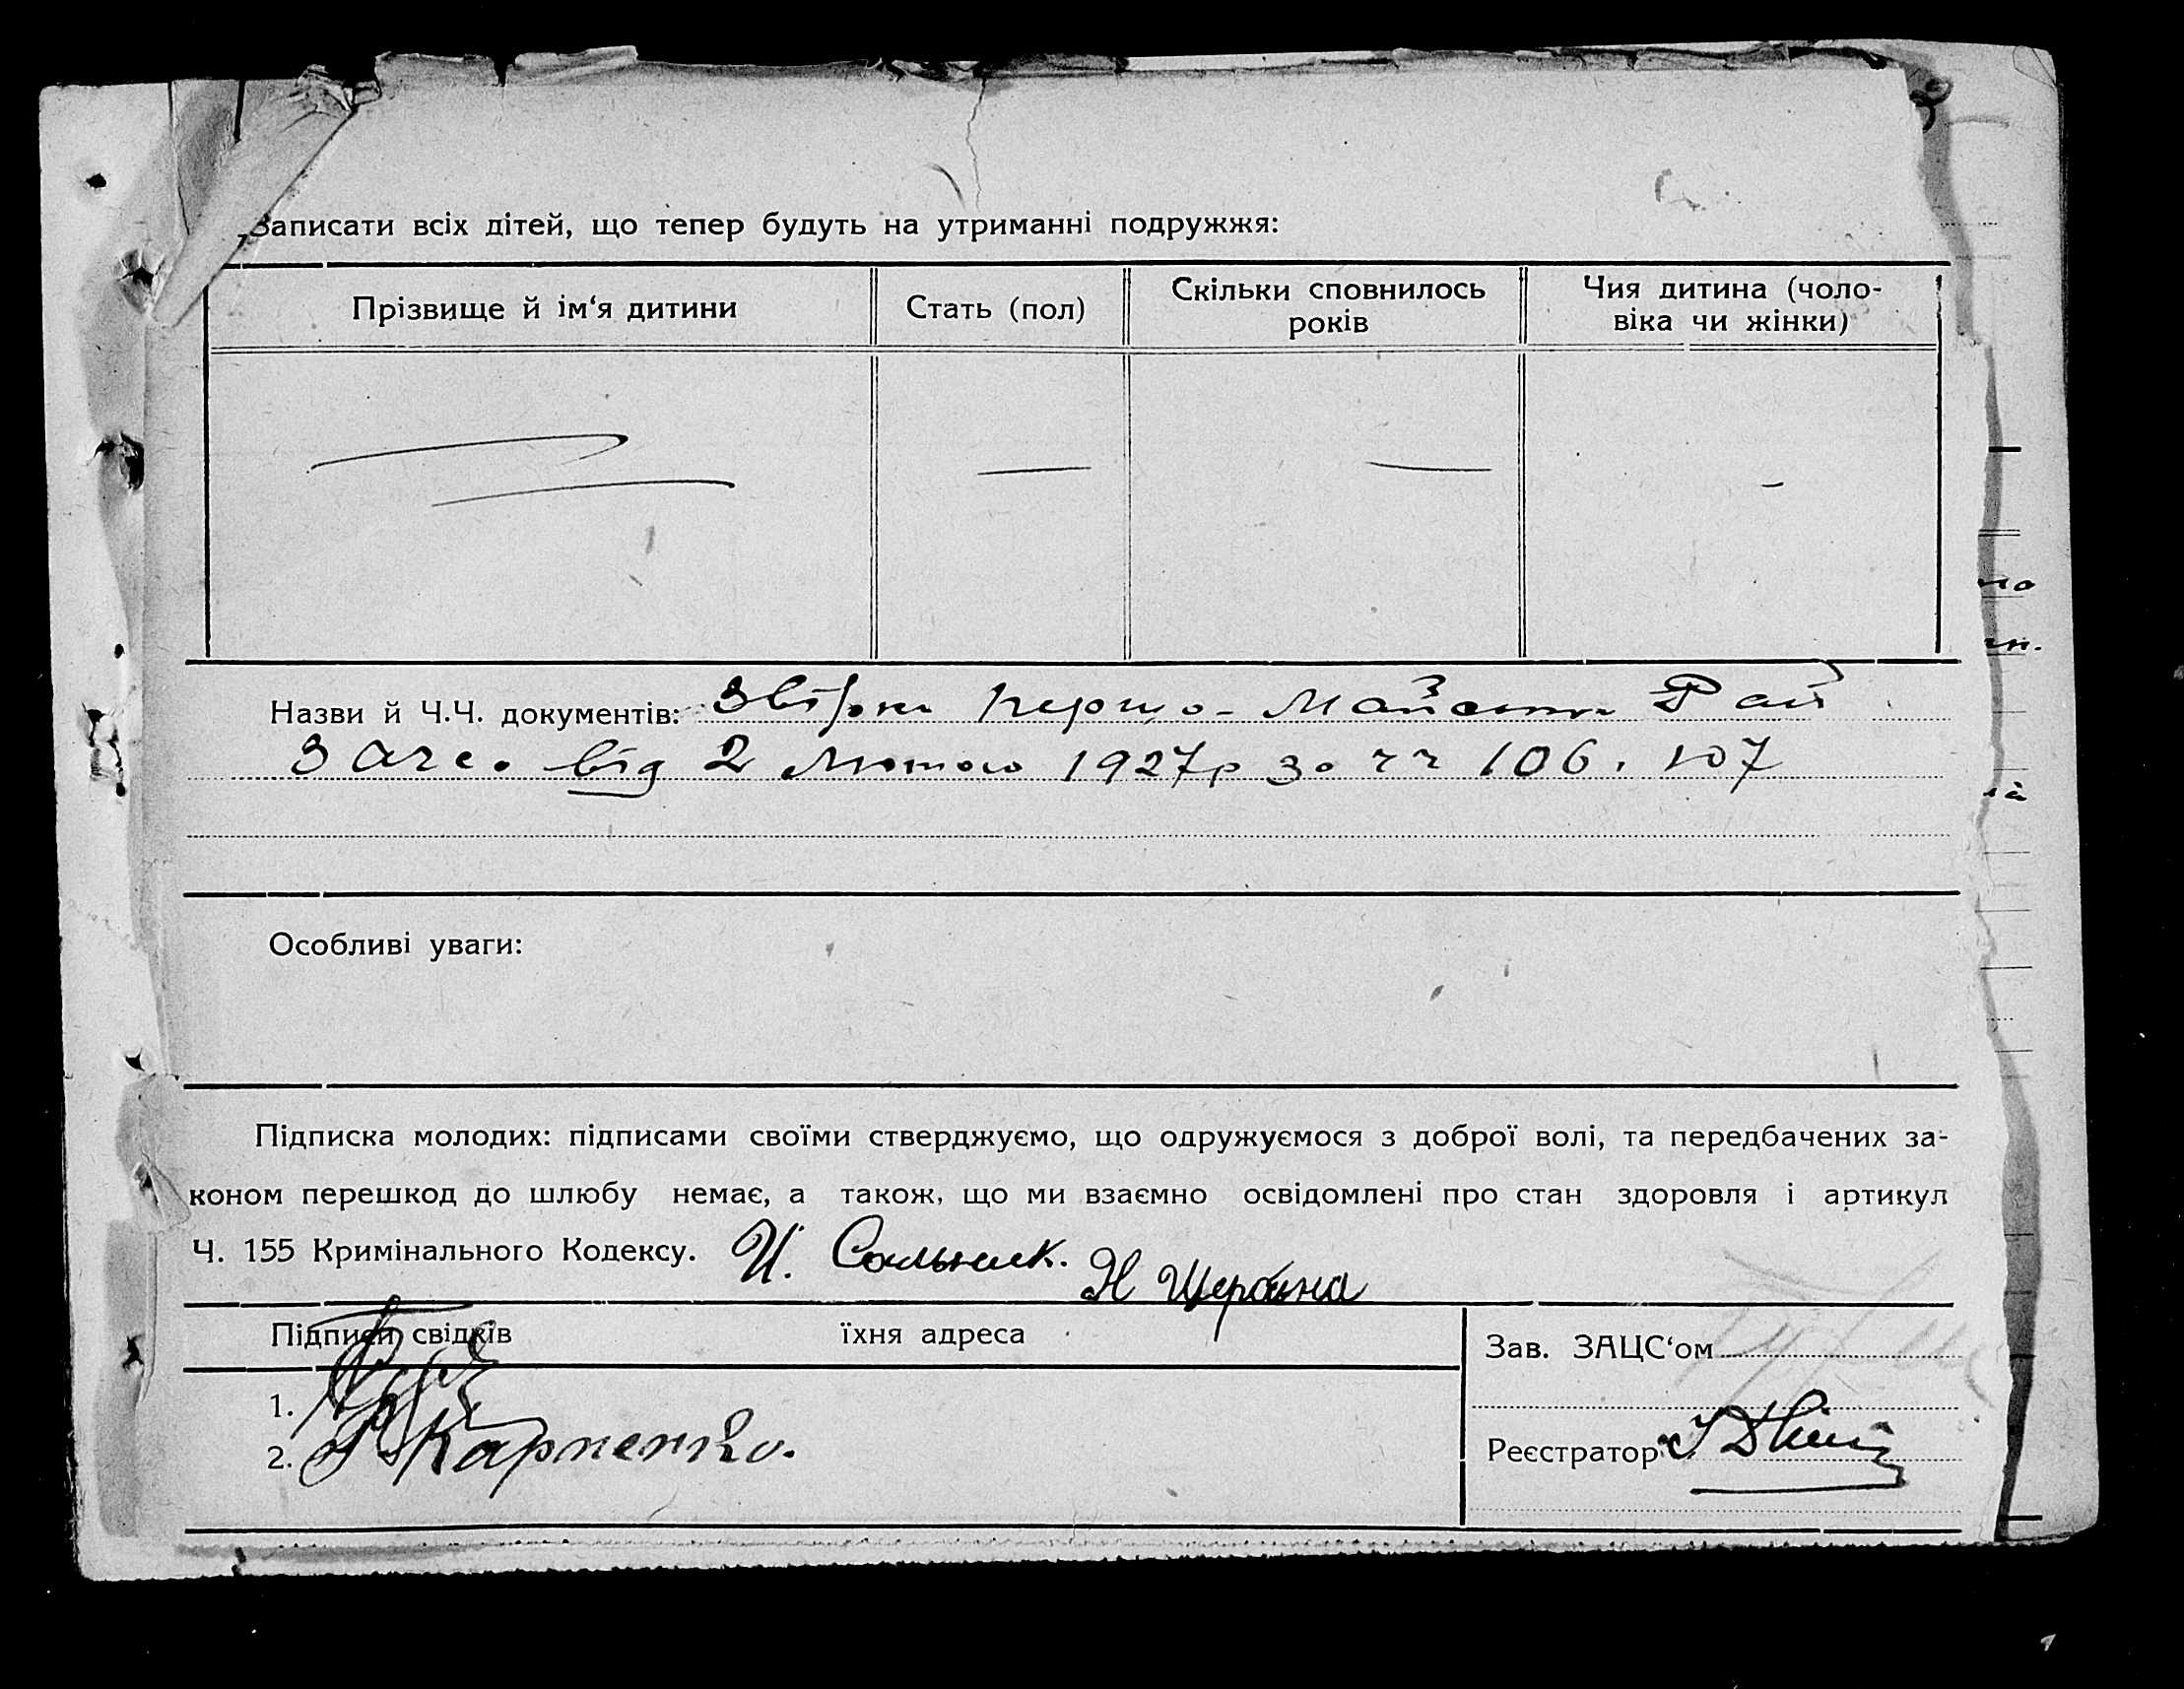 Записати всіх дітей, що тепер будуть на утриманні подружжя:
Прізвище й ім‘я дитини
Стать (пол)
Скільки сповнилось
років
Чия дитина (чоло-
віка чи жінки)
Назви й Ч.Ч. документів: Перто-Май Рай
від 2 Лютого 1927р за чч 106. 107
Особливі уваги:
Підписка молодих: підписами своїми стверджуємо, що одружуємося з доброї волі, та передбачених за-
коном перешкод до шлюбу немає, а також, що ми взаємно освідомлені про стан здоровля і артикул
Ч. 155 Кримінального Кодексу. И. Сальник. Н Щербина
Підписи свідків їхня адреса
Зав. ЗАЦС‘ом
1.
2. Карпенко.
Реєстратор